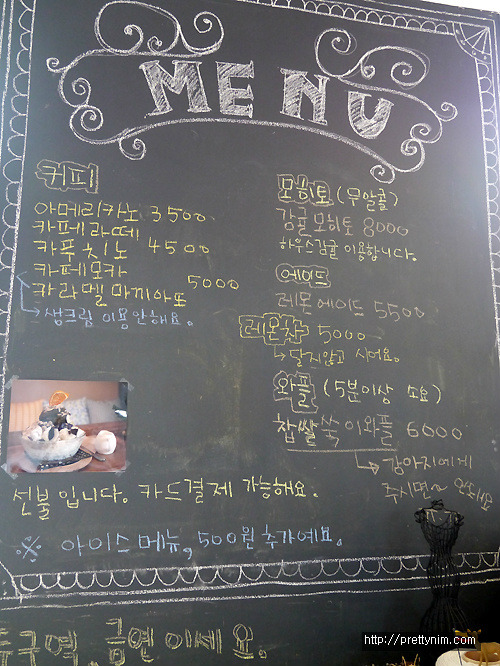 MENU
커피
아메리카노 3500
카페라떼
카푹치노 4500
카페모카
카라멜마끼아또 5000
생크림 이용안해요.
모히토 (무알콜)
감귤모히토 8000
하우스감귤 이용합니다.
에이드
레몬에이드 5500
레몬차 5000
달지않고 시어요.
와플 (5분이상 소요)
찹쌀쑥이와플 6000
강아지에게
주시면~ 안돼요
선불입니다. 카드결제 가능해요.
※ 아이스메뉴, 500원 추가예요.
금연이세요.
http://prettynim.com